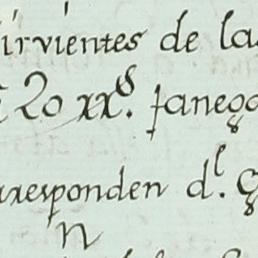 irvientes de la
20 xx^s. fanega
rresponden d^l.